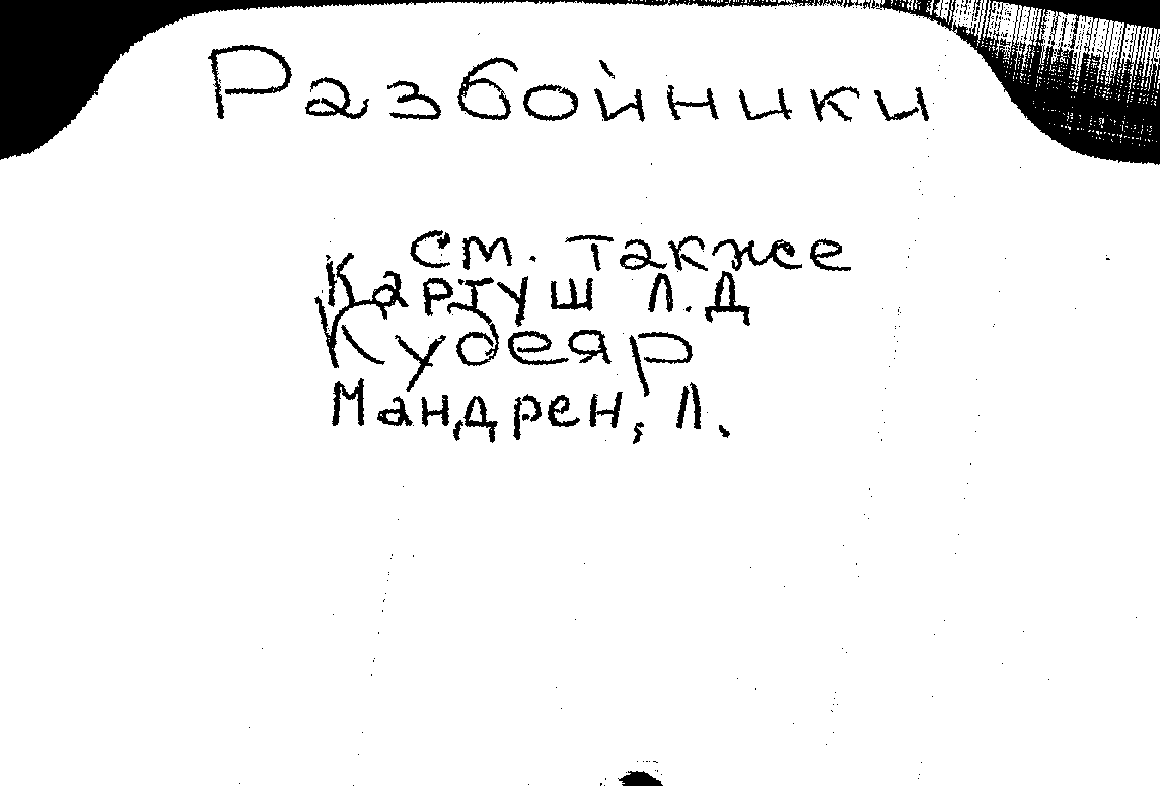 Разбойники
см. также
Картуш Л.Д
Кудеяр
Мандрен, Л.